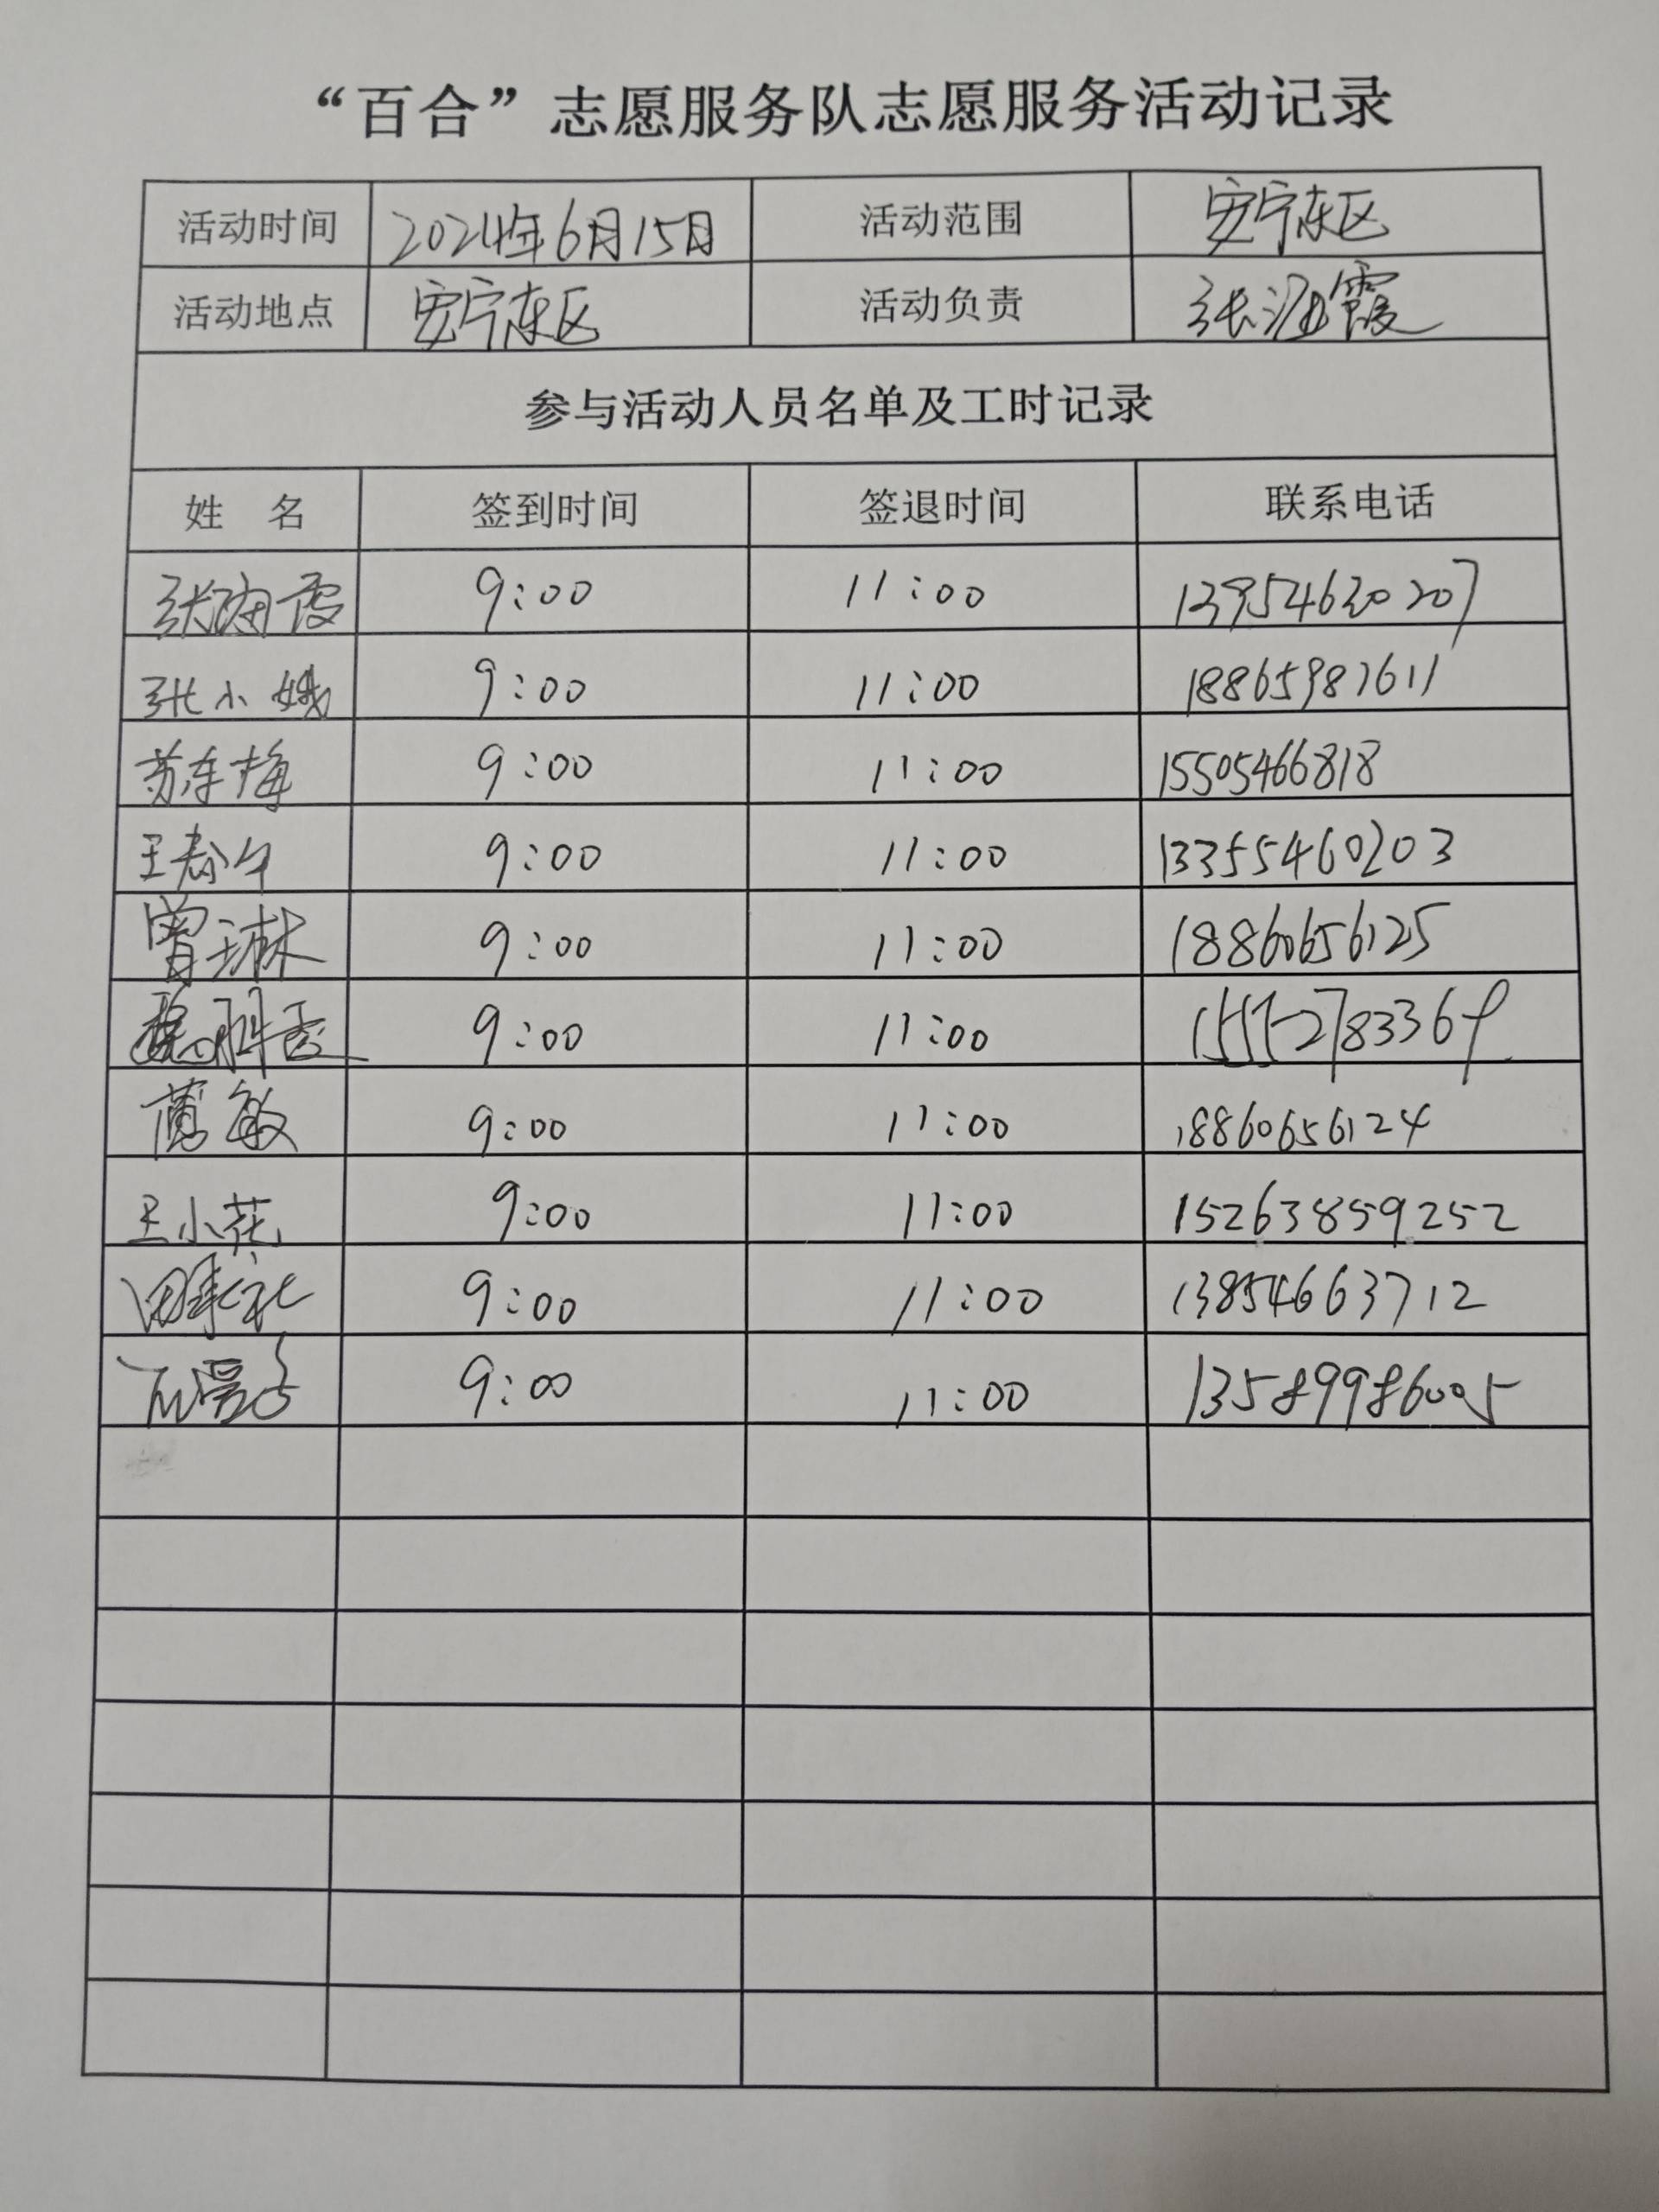 “百合”志愿服务队志愿服务活动记录
活动时间 2024年6月15日 活动范围 安宁东区
活动地点 安宁东区 活动负责 张海霞
参与活动人员名单及工时记录
姓 名 签到时间 签退时间 联系电话
张海霞 9:00 11:00 13954620207
张小娥 9:00 11:00 18865987611
苏连梅 9:00 11:00 15505466818
王春 9:00 11:00 13355460203
曾琳 9:00 11:00 18860656125
9:00 11:00
敏 9:00 11:00 18860656124
王小花 9:00 11:00 15263859252
9:00 11:00 13854663712
9:00 11:00 13589986005